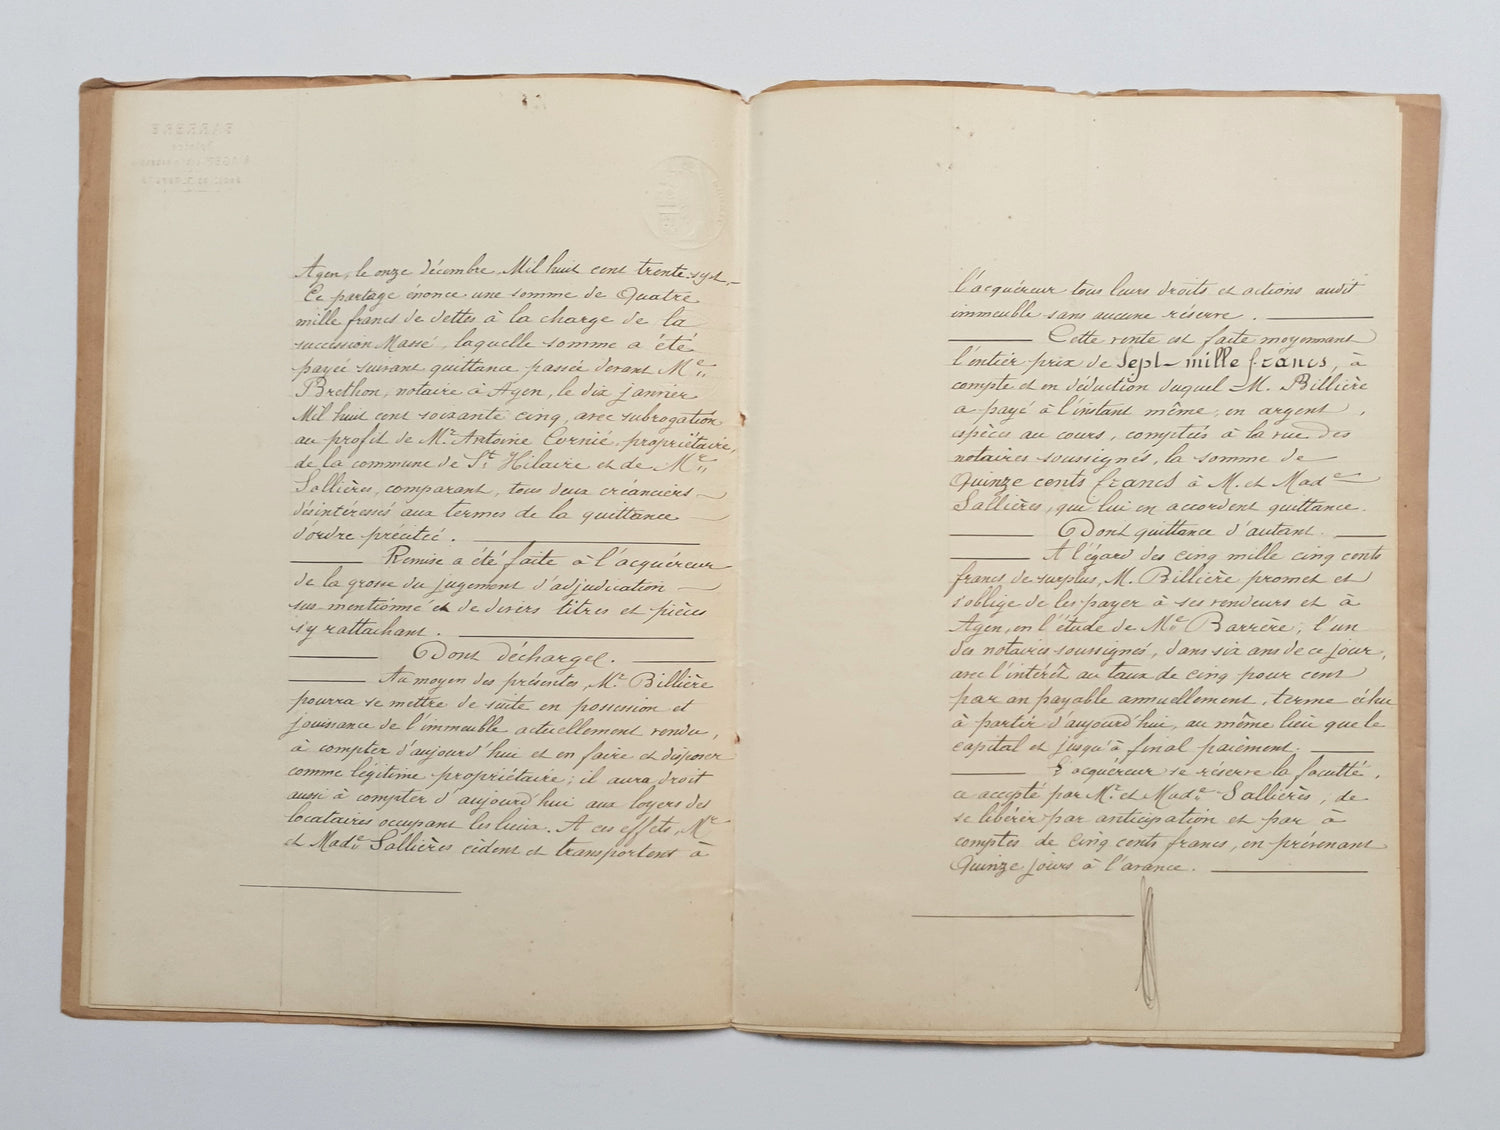 Agen, le onze décembre Mil huit cent trente-sept,
Ce partage énonce une somme de Quatre
mille francs de dettes à la charge de la
succession Massé, laquelle somme a été
payée suivant quittance passée devant Me
Brethon, notaire à Agen, le dix janvier
Mil huit cent soixante cinq, avec subrogation
au profit de Mr Antoine Cornié, propriétaire,
de la commune de St Hilaire et de Mr
Sallières, comparant, tous deux créanciers
désintéressés aux termes de la quittance
d'ordre précitée.
Remise a été faite à l'acquéreur
de la grosse du jugement d'adjudication
sus mentionné et de divers titres et pièces
s'y rattachant.
Dont décharge.
Au moyen des présentes, Mr Billière
pourra se mettre de suite en possession et
jouissance de l'immeuble actuellement vendu,
à compter d'aujourd'hui et en faire et disposer
comme légitime propriétaire; il aura droit
aussi à compter d'aujourd'hui aux loyers des
locataires occupant les lieux. A ces effets, Mr
et Made Sallières cèdent et transportent à
l'acquéreur tous leurs droits et actions audit
immeuble sans aucune réserve.
Cette vente est faite moyennant
l'entier prix de Sept-mille francs, à
compte et en déduction duquel M. Billière
a payé à l'instant même, en argent,
espèces au cours, comptés à la vue des
notaires soussignés, la somme de
Quinze cents francs à M. et Made
Sallières, qui lui en accordent quittance.
Dont quittance d'autant.
A l'égard des cinq mille cinq cents
francs de surplus, M. Billière promet et
s'oblige de les payer à ses vendeurs et à
Agen, en l'étude de Me Barrère, l'un
des notaires soussignés, dans six ans de ce jour,
avec l'intérêt au taux de cinq pour cent
par an payable annuellement, terme échu
à partir d'aujourd'hui, au même lieu que le
capital et jusqu'à final paiement.
L'acquéreur se réserve la faculté,
ce accepté par Mr et Made Sallières, de
se libérer par anticipation et par à
comptes de cinq cents francs, en prévenant
Quinze jours à l'avance.